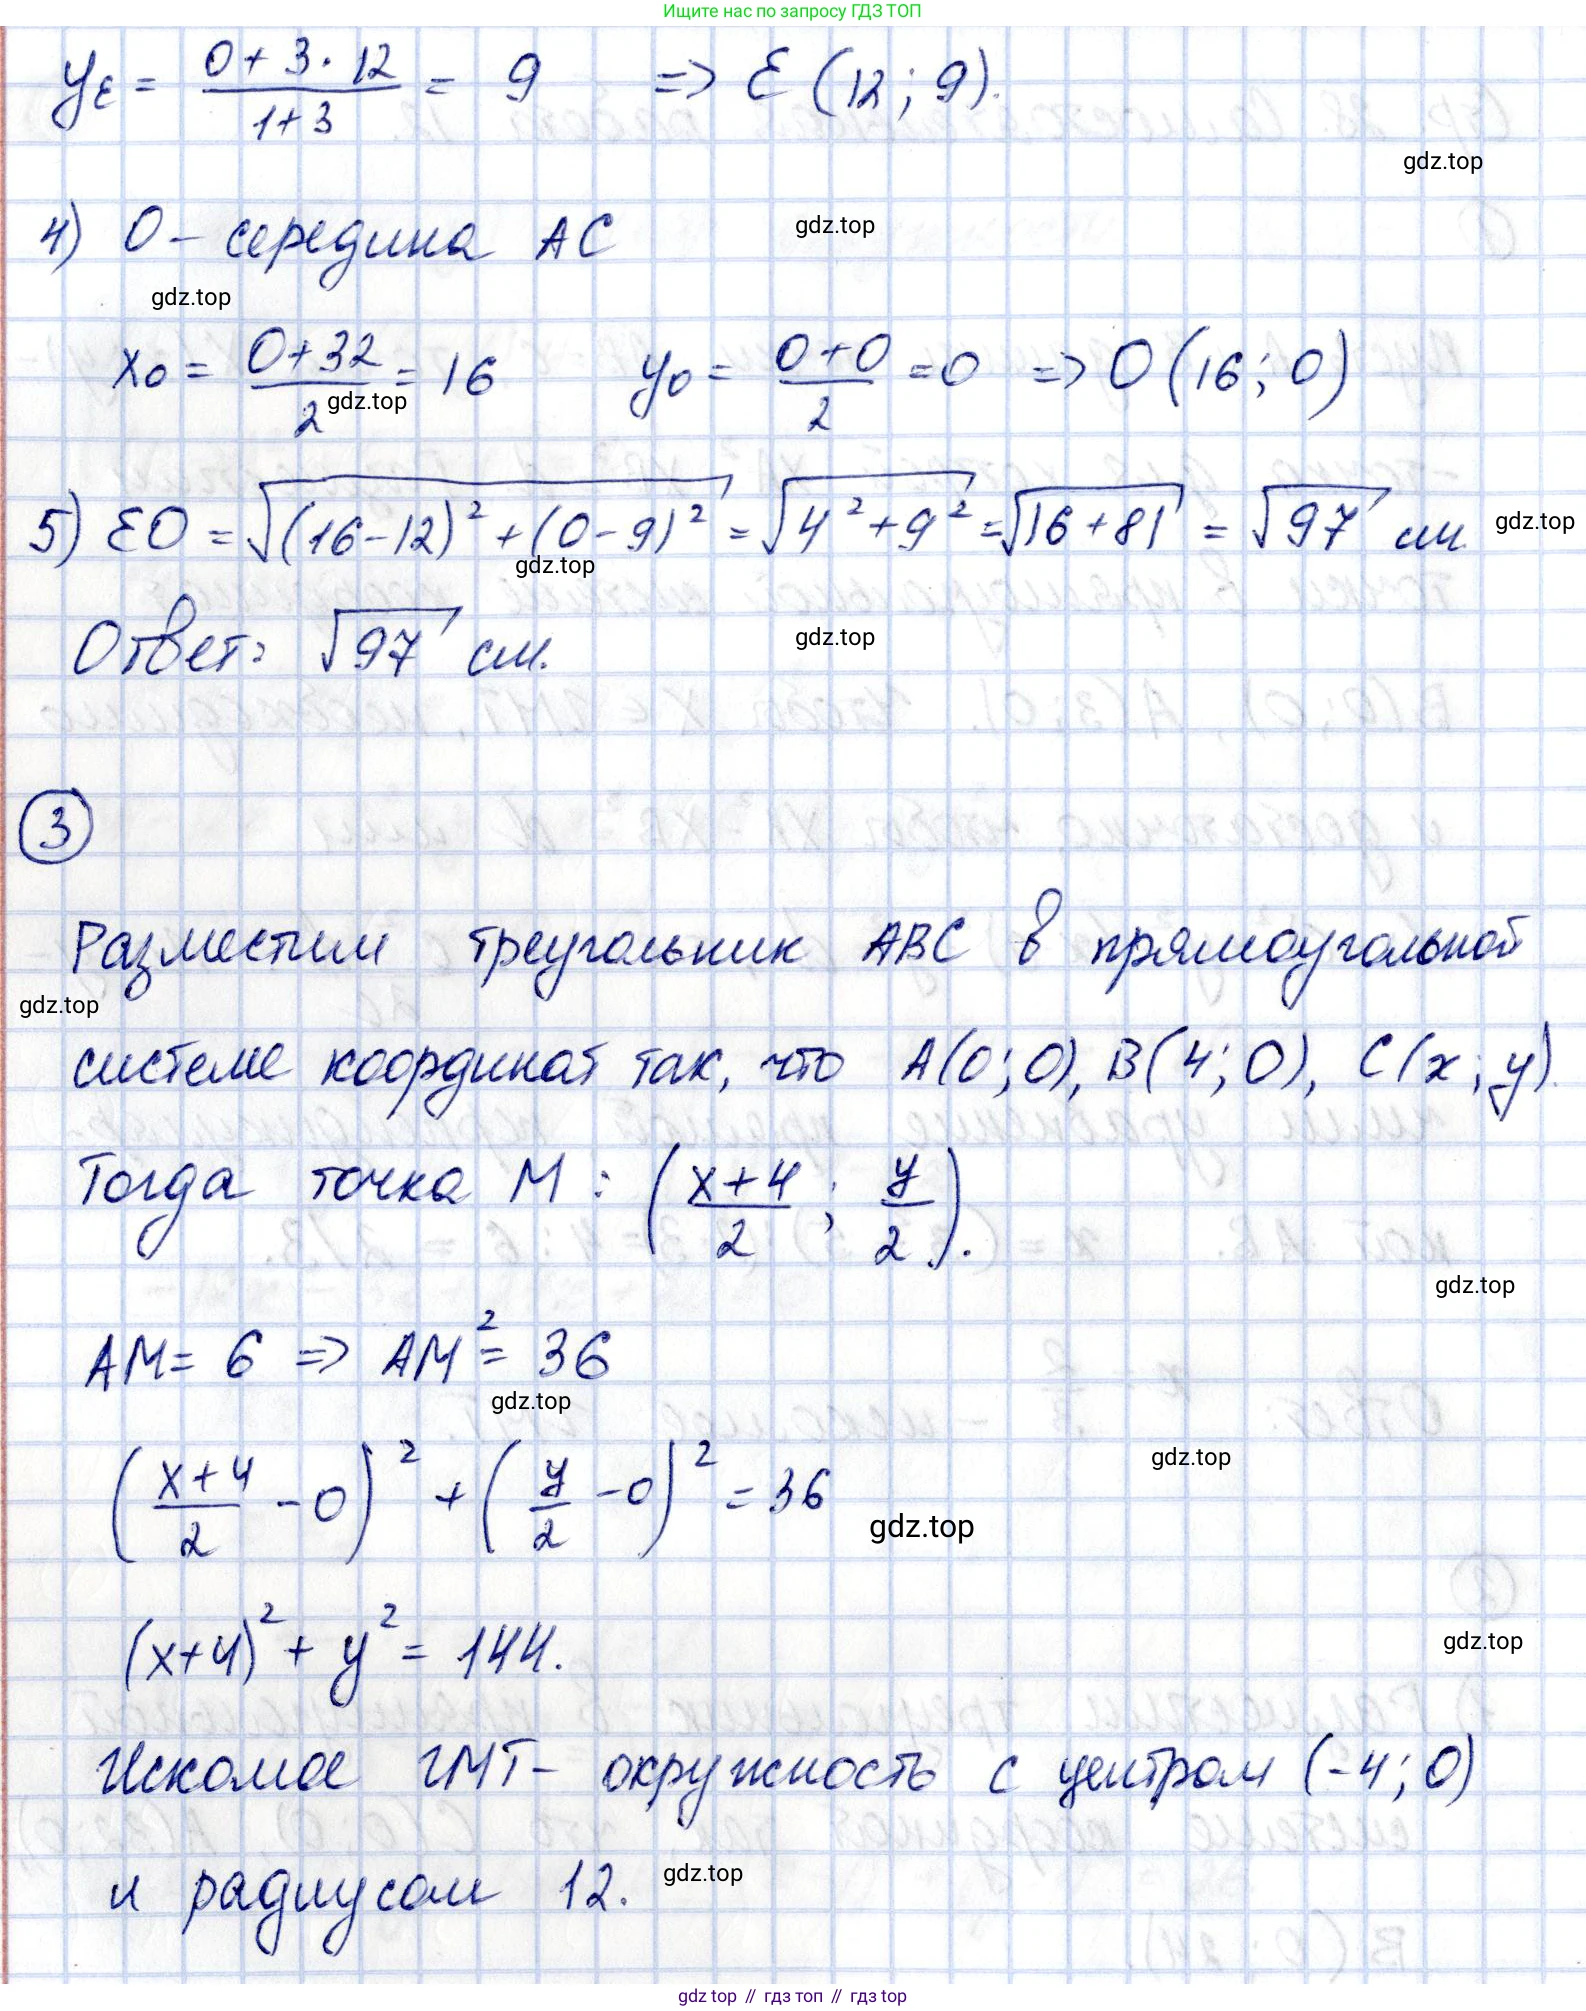 Ищите нас по запросу ГДЗ ТОП
y_E = (0 + 3 · 12)/(1+3) = 9 => E (12; 9).
gdz.top
4) O – середина AC
gdz.top
gdz.top
x_O = (0+32)/2 = 16 y_O = (0+0)/2 = 0 => O (16; 0)
gdz.top
5) EO = √((16-12)² + (0-9)²) = √(4² + 9²) = √(16+81) = √97 см
gdz.top
gdz.top
Ответ: √97 см.
gdz.top
3
Разместим треугольник ABC в прямоугольной
gdz.top
системе координат так, что A(0;0), B(4;0), C(x;y).
Тогда точка M : ((x+4)/2 ; y/2).
gdz.top
AM = 6 => AM² = 36
gdz.top
gdz.top
((x+4)/2 - 0)² + (y/2 - 0)² = 36
gdz.top
(x+4)² + y² = 144.
gdz.top
Искомое ГМТ – окружность с центром (-4; 0)
и радиусом 12.
gdz.top
gdz.top // гдз топ // гдз top